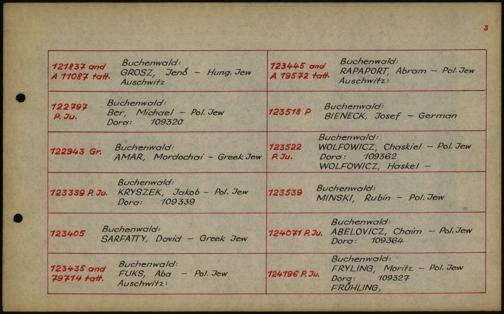 3
121837 and
A 11087 tatt.
Buchenwald:
GROSZ, Jenő - Hung. Jew
Auschwitz
122797
P. Ju.
Buchenwald:
Ber, Michael - Pol. Jew
Dora: 109320
122943 Gr.
Buchenwald:
AMAR, Mordochai - Greek Jew
123339 P. Ju.
Buchenwald:
KRYSZEK, Jakob - Pol. Jew
Dora: 109339
123405
Buchenwald:
SARFATTY, David - Greek Jew
123435 and
79714 tatt.
Buchenwald:
FUKS, Aba - Pol. Jew
Auschwitz:
123445 and
A 19572 tatt.
Buchenwald:
RAPAPORT, Abram - Pol. Jew
Auschwitz:
123518 P
Buchenwald:
BIENECK, Josef - German
123522
P. Ju.
Buchenwald:
WOLFOWICZ, Chaskiel - Pol. Jew
Dora: 109362
WOLFOWICZ, Haskel -
123539
Buchenwald:
MINSKI, Rubin - Pol. Jew
124071 P. Ju.
Buchenwald:
ABELOVICZ, Chaim - Pol. Jew
Dora: 109364
124196 P. Ju.
Buchenwald:
FRYLING, Moritz - Pol. Jew
Dora: 109327
FRÜHLING,